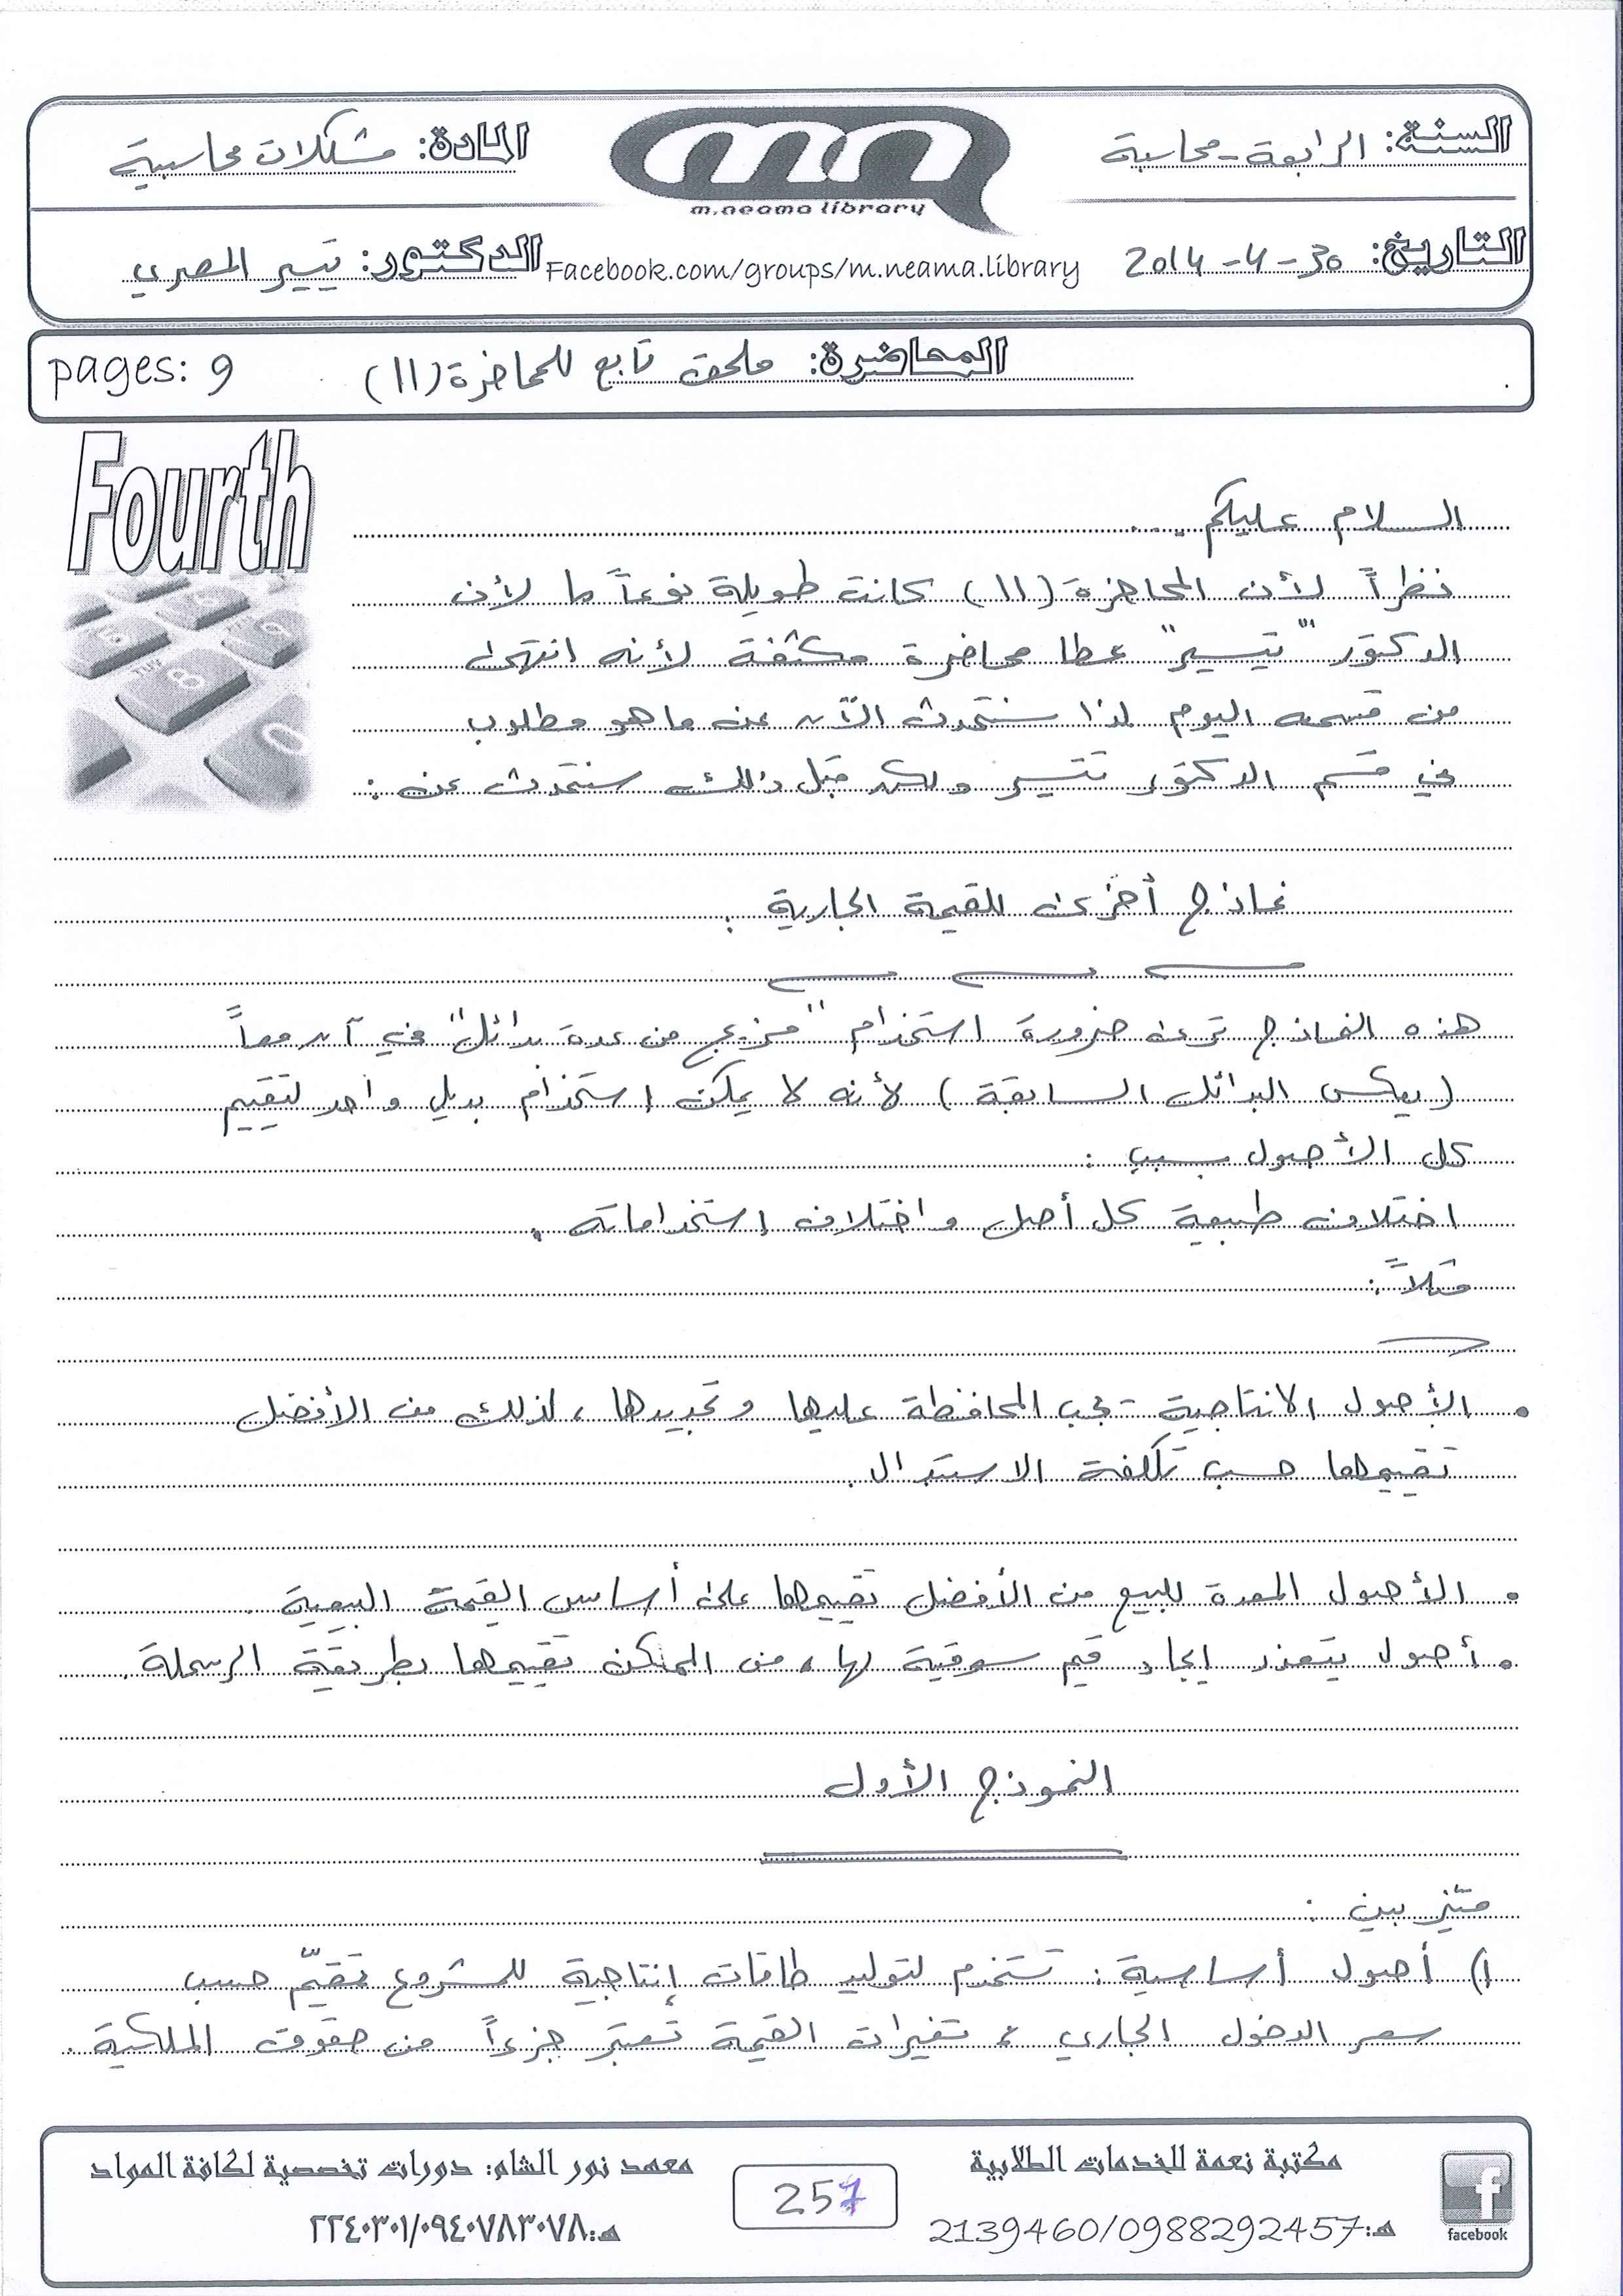 السنة: الرابعة - محاسبة
المادة: مشكلات محاسبية
m.neama library
التاريخ: 30-4-2014
Facebook.com/groups/m.neama.library
الدكتور: تيسير المصري
المحاضرة: ملحق تابع للمحاضرة (11)
pages: 9
Fourth
السلام عليكم ..
نظراً لأن المحاضرة (11) كانت طويلة نوعاً ما لأن
الدكتور "تيسير" عطا محاضرة مكثفة لأنه انتهى
من قسمه اليوم لذا سنتحدث الآن عن ما هو مطلوب
في قسم الدكتور تيسير ولكن قبل ذلك سنتحدث عن :
نماذج أخرى للقيمة الجارية .
هذه النماذج ترى ضرورة استخدام "مزيج من عدة بدائل" في آن معاً
(بعكس البدائل السابقة) لأنه لا يمكن استخدام بديل واحد لتقييم
كل الأصول بسبب :
اختلاف طبيعة كل أصل واختلاف استخداماته .
مثلاً :
• الأصول الانتاجية - يجب المحافظة عليها وتجديدها ، لذلك من الأفضل
تقييمها حسب تكلفة الاستبدال .
• الأصول المعدة للبيع من الأفضل تقييمها على أساس القيمة البيعية .
• أصول يتعذر ايجاد قيم سوقية لها ، من الممكن تقييمها بطريقة الرسملة .
النموذج الأول
ميّز بين :
1) أصول أساسية : تستخدم لتوليد طاقات إنتاجية للمشروع تقيّم حسب
سعر الدخول الجاري ، تغيرات القيمة تعتبر جزءاً من حقوق الملكية .
مكتبة نعمة للخدمات الطلابية
هـ: 2139460/0988292457
facebook
257
معهد نور الشام: دورات تخصصية لكافة المواد
هـ: ٢٢٤٠٣٠١/٠٩٤٠٧٨٣٠٧٨